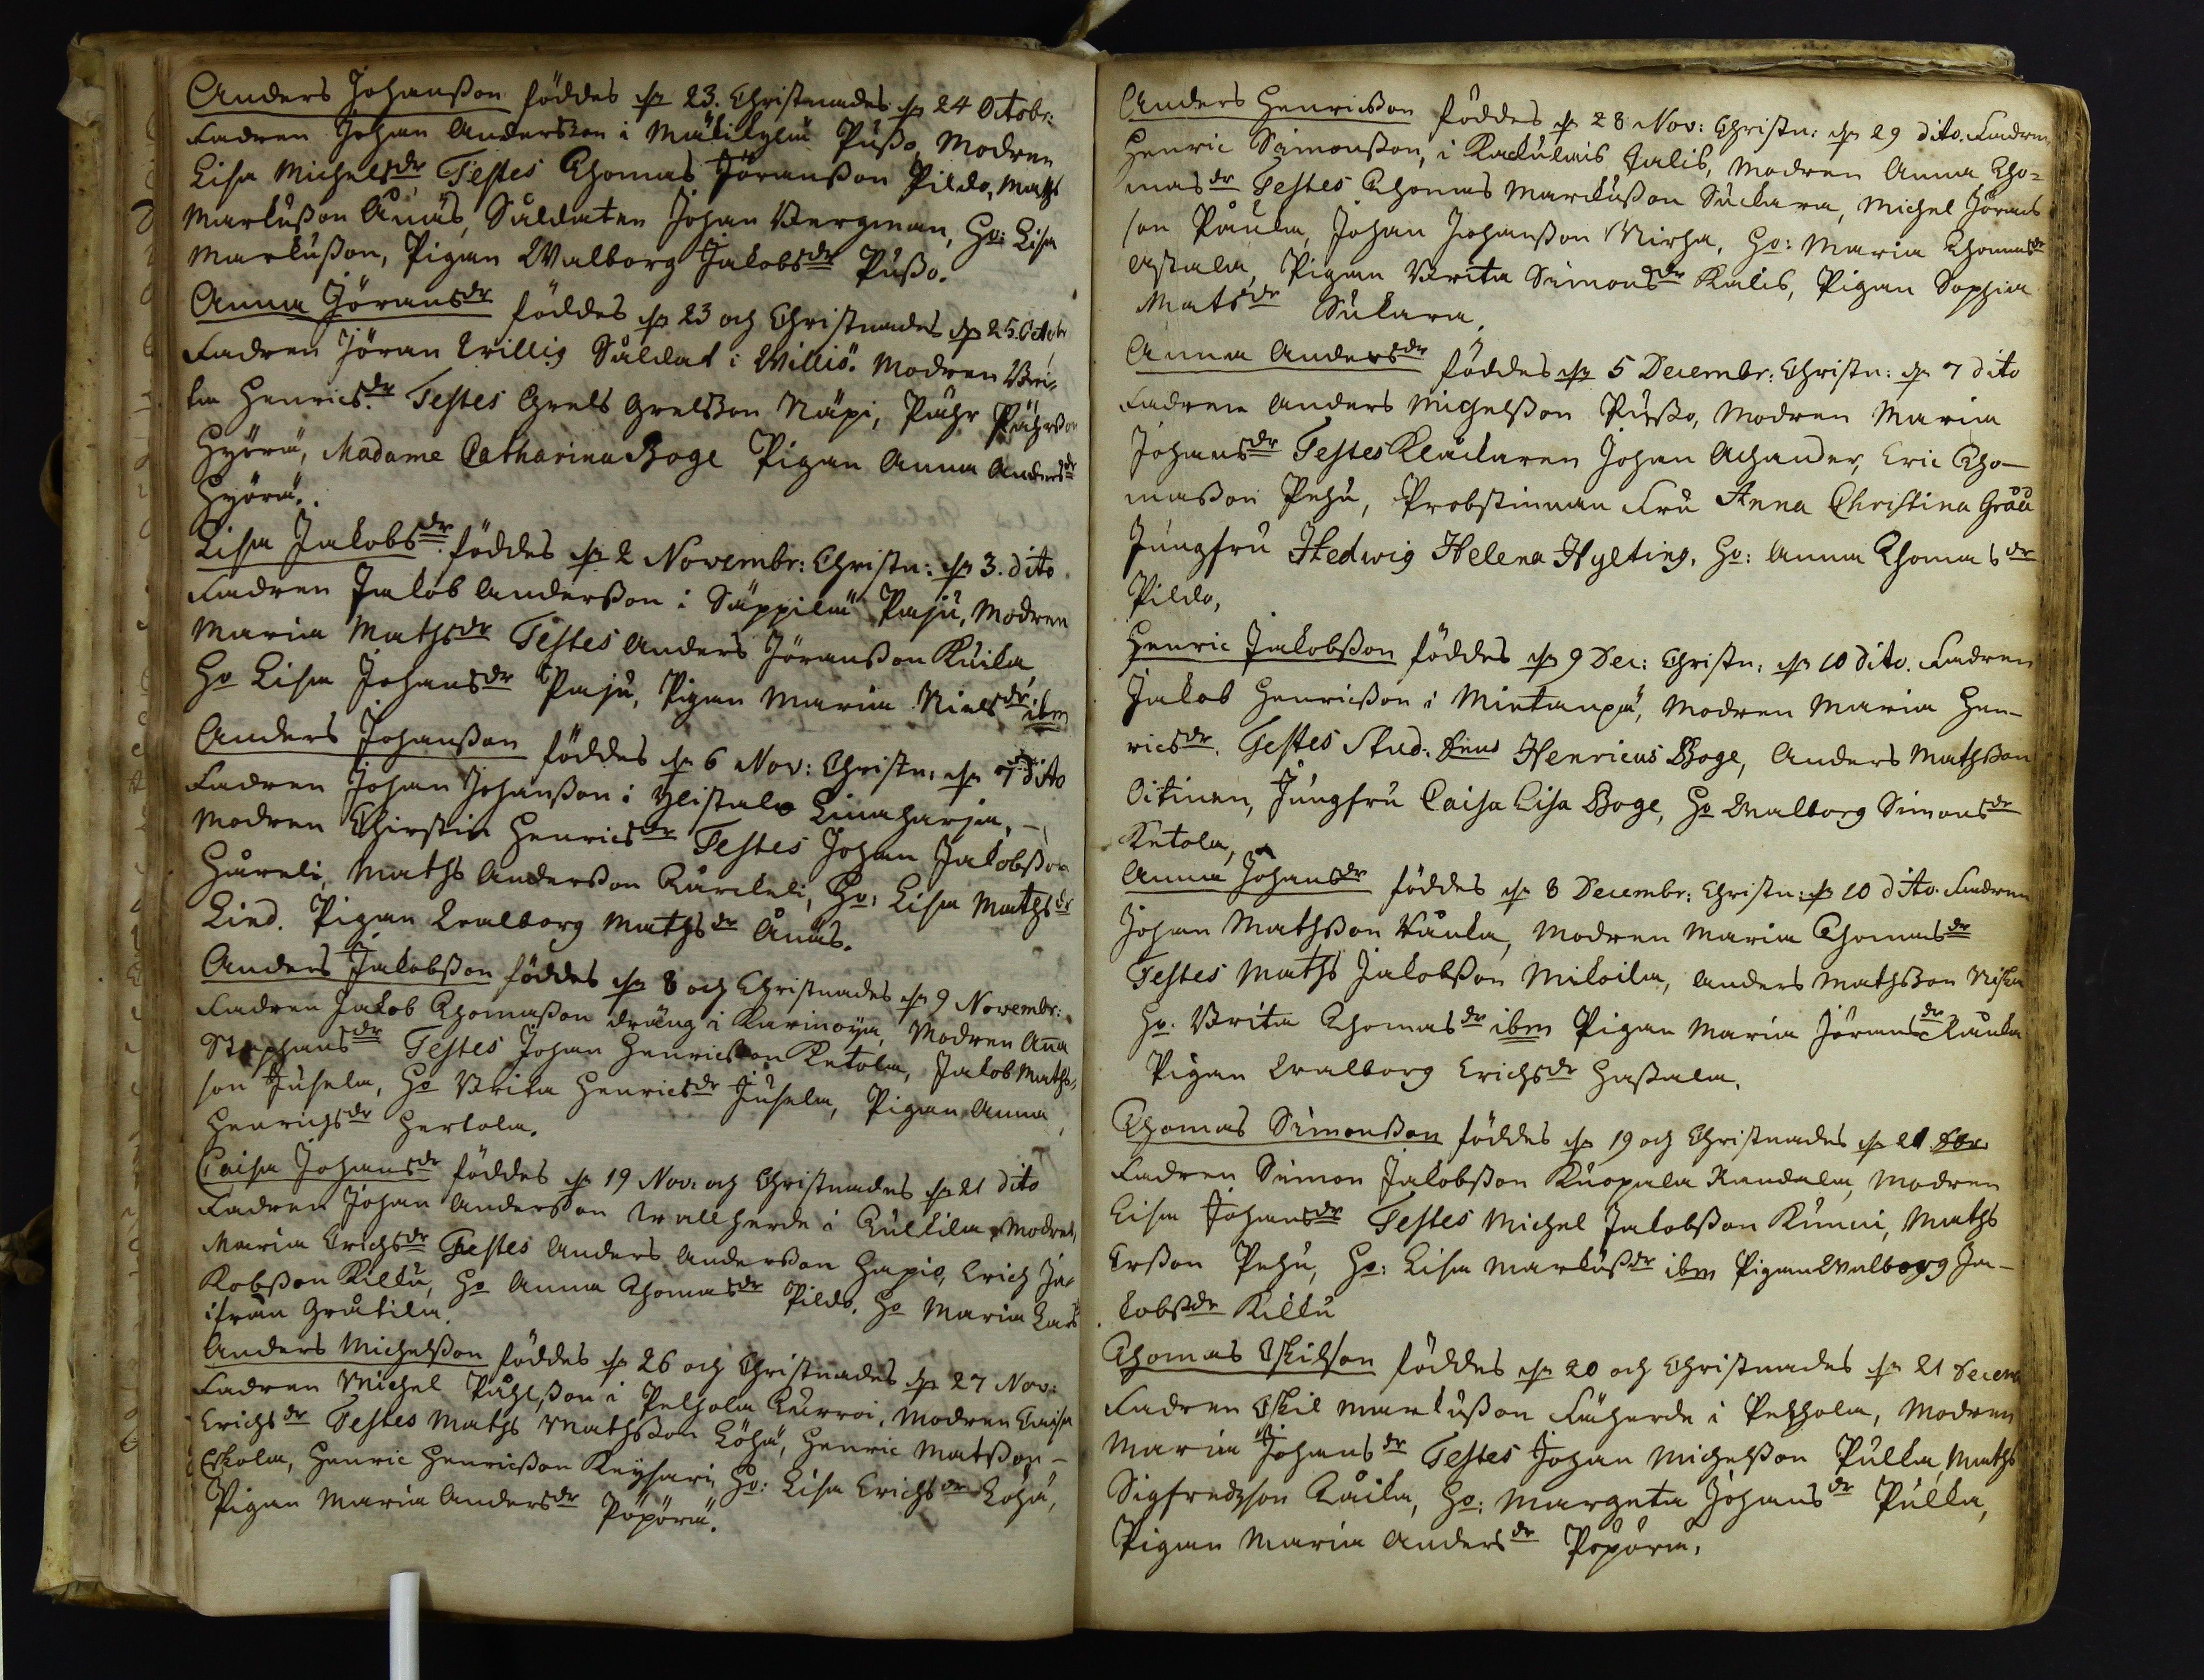 Anders Johansson föddes d 23. Christnades d 24 Octobr:
Fadren Johan Andersson i Mälikylä Pusso, Modren
Lisa Michelsdr Testes Thomas Jöransson Pildo, Maths
Markusson Ånäs, Såldaten Johan Bergman, Ho: Lisa
Markusson, Pigan Walborg Jakobsdr Pusso.
Anna Jöransdr föddes d 23 och Christnades d 25. Octobr
Fadren Jöran Willig Såldat i Williö. Modren Bri-
ta Henricsdr. Testes Grels Grelsson Näpi, Påhr Påhrsson
Hyörä, Madame Catharina Boge Pigan Anna Andersdr
Hyörä.
Lisa Jakobsdr. föddes d 2 Novembr: Christn: d 3. dito
Fadren Jakob Andersson i Säppilä Paju, Modren
Maria Mathsdr Testes Anders Jöransson Kuila
Ho Lisa Johansdr Paju, Pigan Maria Nielsdr ibm
Anders Johansson föddes d 6 Nov: Christn: d 7 dito
Fadren Johan Johansson i Ylistalo Linaharja, –
Modren Christin Henricsdr Testes Johan Jakobsson
Håreli, Maths Andersson Kårckeli, Ho: Lisa Mathsdr
Lind. Pigan Walborg Mathsdr Ånäs.
Anders Jakobsson föddes d 8 och Christnades d 9 Novembr:
Fadren Jakob Thomasson dräng i Karinoija, Modren Aña
Stephansdr Testes Johan Henricsson Ketola, Jakob Maths-
son Jusela, Ho Brita Henricsdr Jusela, Pigan Anna
Henrichsdr Hertola.
Caisa Johansdr föddes d 19 Nov: och Christnades d 21 dito
Fadren Johan Andersson Wallherde i Kulkila, Modren,
Maria Erichsdr Testes Anders Andersson Hapio, Erich Ja-
kobsson Killu, Ho Anna Thomasdr Pildo. Ho Maria Lars
ifrån Gråtila.
Anders Michelsson föddes d 26 och Christnades d 27 Nov:
Fadren Michel Påhlsson i Pelhola Kurroi, Modren Caisa
Erichsdr Testes Maths Mathsson Löhä, Henric Matsson –
Eskola, Henric Henricsson Keysari, Ho: Lisa Erichsdr Lohä,
Pigan Maria Andersdr Pöpörä.
Anders Henricsson föddes d 28 Nov: Christn: d 29 dito. Fadren,
Henric Simonsson, i Kackulais Jalis, Modren Anna Tho-
masdr Testes Thomas Markusson Suckara, Michel Jörans
son Påuka, Johan Johansson Mirha, Ho: Maria Thomasdr
Astala, Pigan Brita Simonsdr Kalis, Pigan Sophia
Matsdr Sukara.
Anna Andersdr föddes d 5 Decembr: Christn: d 7 dito
Fadren Anders Michelsson Pusso, Modren Maria
Johansdr Testes Klackaren Johan Achander, Eric Tho-
masson Pehu, Probstinnan Fru Anna Christina Gråå
Jungfru Hedwig Helena Hylting. Ho: Anna Thomasdr
Pildo,
Henric Jakobsson föddes d 9 Dec: Christn: d 10 dito. Fadren
Jakob Henricsson i Mietanpä, Modren Maria Hen-
ricsdr. Testes Stud: Henricus Boge, Anders Mathsson
Oitinen, Jungfru Caisa Lisa Boge, Ho Walborg Simonsdr
Ketola,
Anna Johansdr föddes d 8 Decembr: Christn: d 10 dito. Fadren
Johan Mathsson Kåuka, Modren Maria Thomasdr
Testes Maths Jakobsson Mikoila, Anders Mathsson Niska
Ho: Brita Thomasdr ibm Pigan Maria Jöransdr Kauka
Pigan Walborg Erichsdr Hassala.
Thomas Simonsson föddes d 19 och Christnades d 21 Xbr.
Fadren Simon Jakobsson Kuopala Randala, Modren
Lisa Johansdr Testes Michel Jakobsson Kunni, Maths
Ersson Pehu, Ho: Lisa Markussdr ibm Pigan Walborg Ja-
kobssdr Killu
Thomas Eskilson föddes d 20 och Christnades d 21 Decem
Fadren Eskil Markusson Fäherde i Pehhola, Modren
Maria Johansdr Testes Johan Michelsson Pulka, Maths
Sigfredsson Kåila, Ho: Margeta Johansdr Pulka,
Pigan Maria Andersdr Pöpöra.